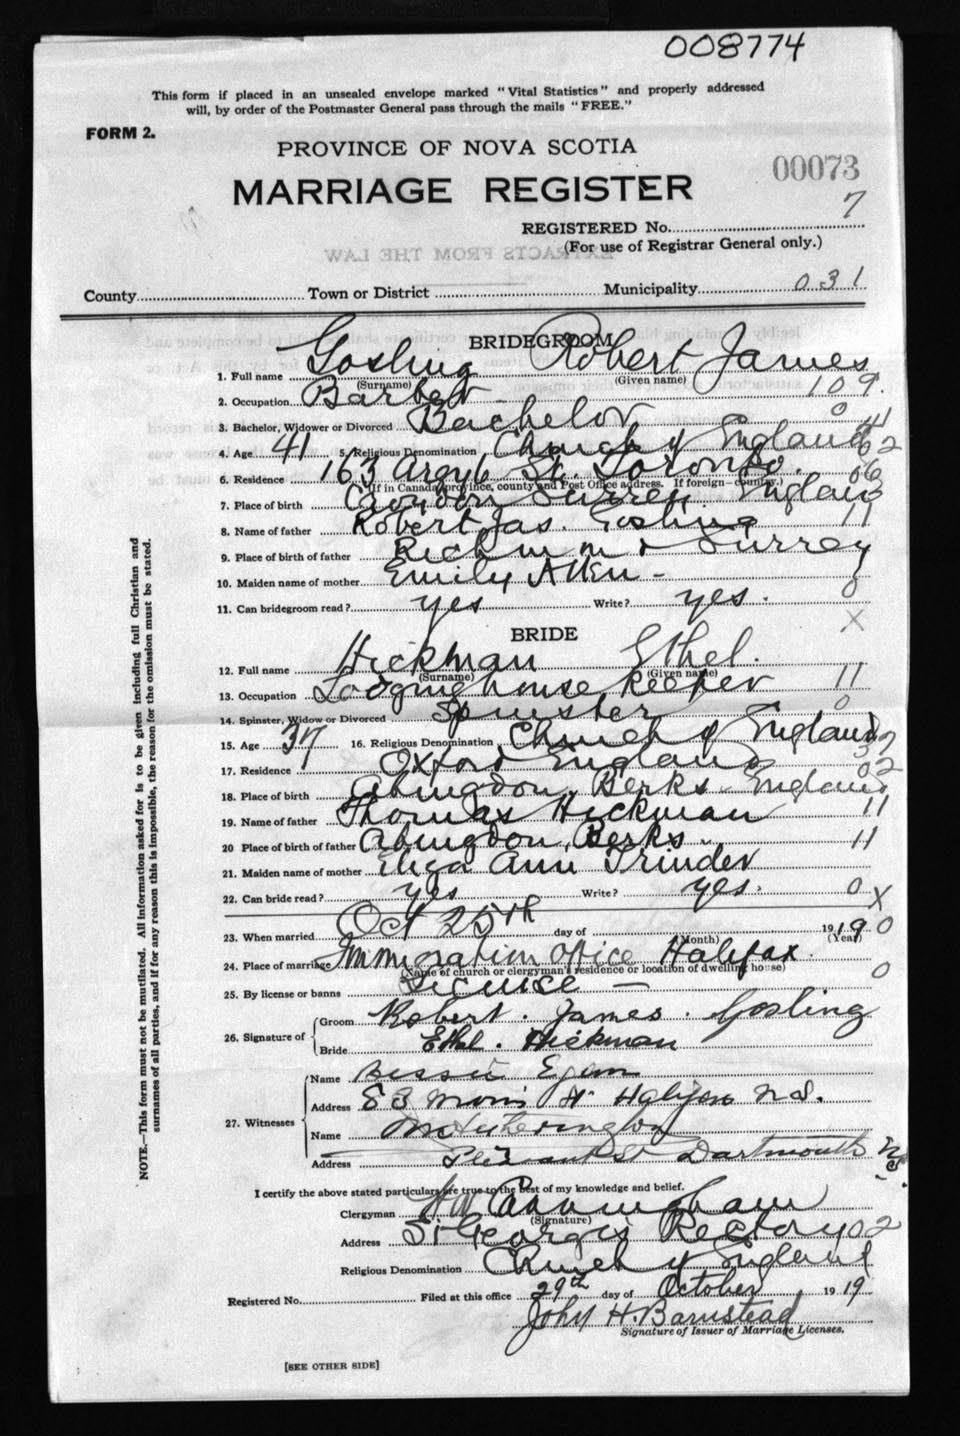 008774
This form if placed in an unsealed envelope marked "Vital Statistics" and properly addressed
will, by order of the Postmaster General pass through the mails "FREE."
FORM 2.
PROVINCE OF NOVA SCOTIA
00073
MARRIAGE REGISTER
7
REGISTERED No.
(For use of Registrar General only.)
EXTRACTS FROM THE LAW
County Town or District Municipality 031
BRIDEGROOM
1. Full name Gosling Robert James
(Surname) (Given name)
2. Occupation Barber 109.
3. Bachelor, Widower or Divorced Bachelor 0
4. Age 41 5. Religious Denomination Church of England 02
6. Residence 163 Argyle St. Toronto. 06
(If in Canada, province, county and Post Office address. If foreign—country.)
7. Place of birth Croydon Surrey England
8. Name of father Robert Jas. Gosling 11
9. Place of birth of father Richmond Surrey
10. Maiden name of mother Emily Allen - 0
11. Can bridegroom read? yes Write? yes. X
BRIDE
12. Full name Hickman Ethel.
(Surname) (Given name)
13. Occupation Lodginghouse Keeper 11
14. Spinster, Widow or Divorced Spinster 0
15. Age 37 16. Religious Denomination Church of England
17. Residence Oxford England 02
18. Place of birth Abingdon, Berks. England
19. Name of father Thomas Hickman 11
20 Place of birth of father Abingdon, Berks. 11
21. Maiden name of mother Eliza Ann Trinder
22. Can bride read? yes Write? yes. 0 X
23. When married Oct 25th day of 1919 0
(Month) (Year)
24. Place of marriage Immigration Office Halifax.
(Name of church or clergyman's residence or location of dwelling house)
25. By license or banns License — 0
26. Signature of Groom Robert. James. Gosling
Bride Ethel. Hickman
27. Witnesses Name Bessie Egan
Address 53 Morris St Halifax N.S.
Name
Address Pleasant St Dartmouth N.S.
I certify the above stated particulars are true to the best of my knowledge and belief.
Clergyman Cunningham
(Signature)
Address St Georges Rectory 02
Religious Denomination Church of England
Registered No. Filed at this office 29th day of October 1919
John H. Barnstead
Signature of Issuer of Marriage Licenses.
[SEE OTHER SIDE]
NOTE.—This form must not be mutilated. All information asked for is to be given including full Christian and
surnames of all parties, and if for any reason this is impossible, the reason for the omission must be stated.